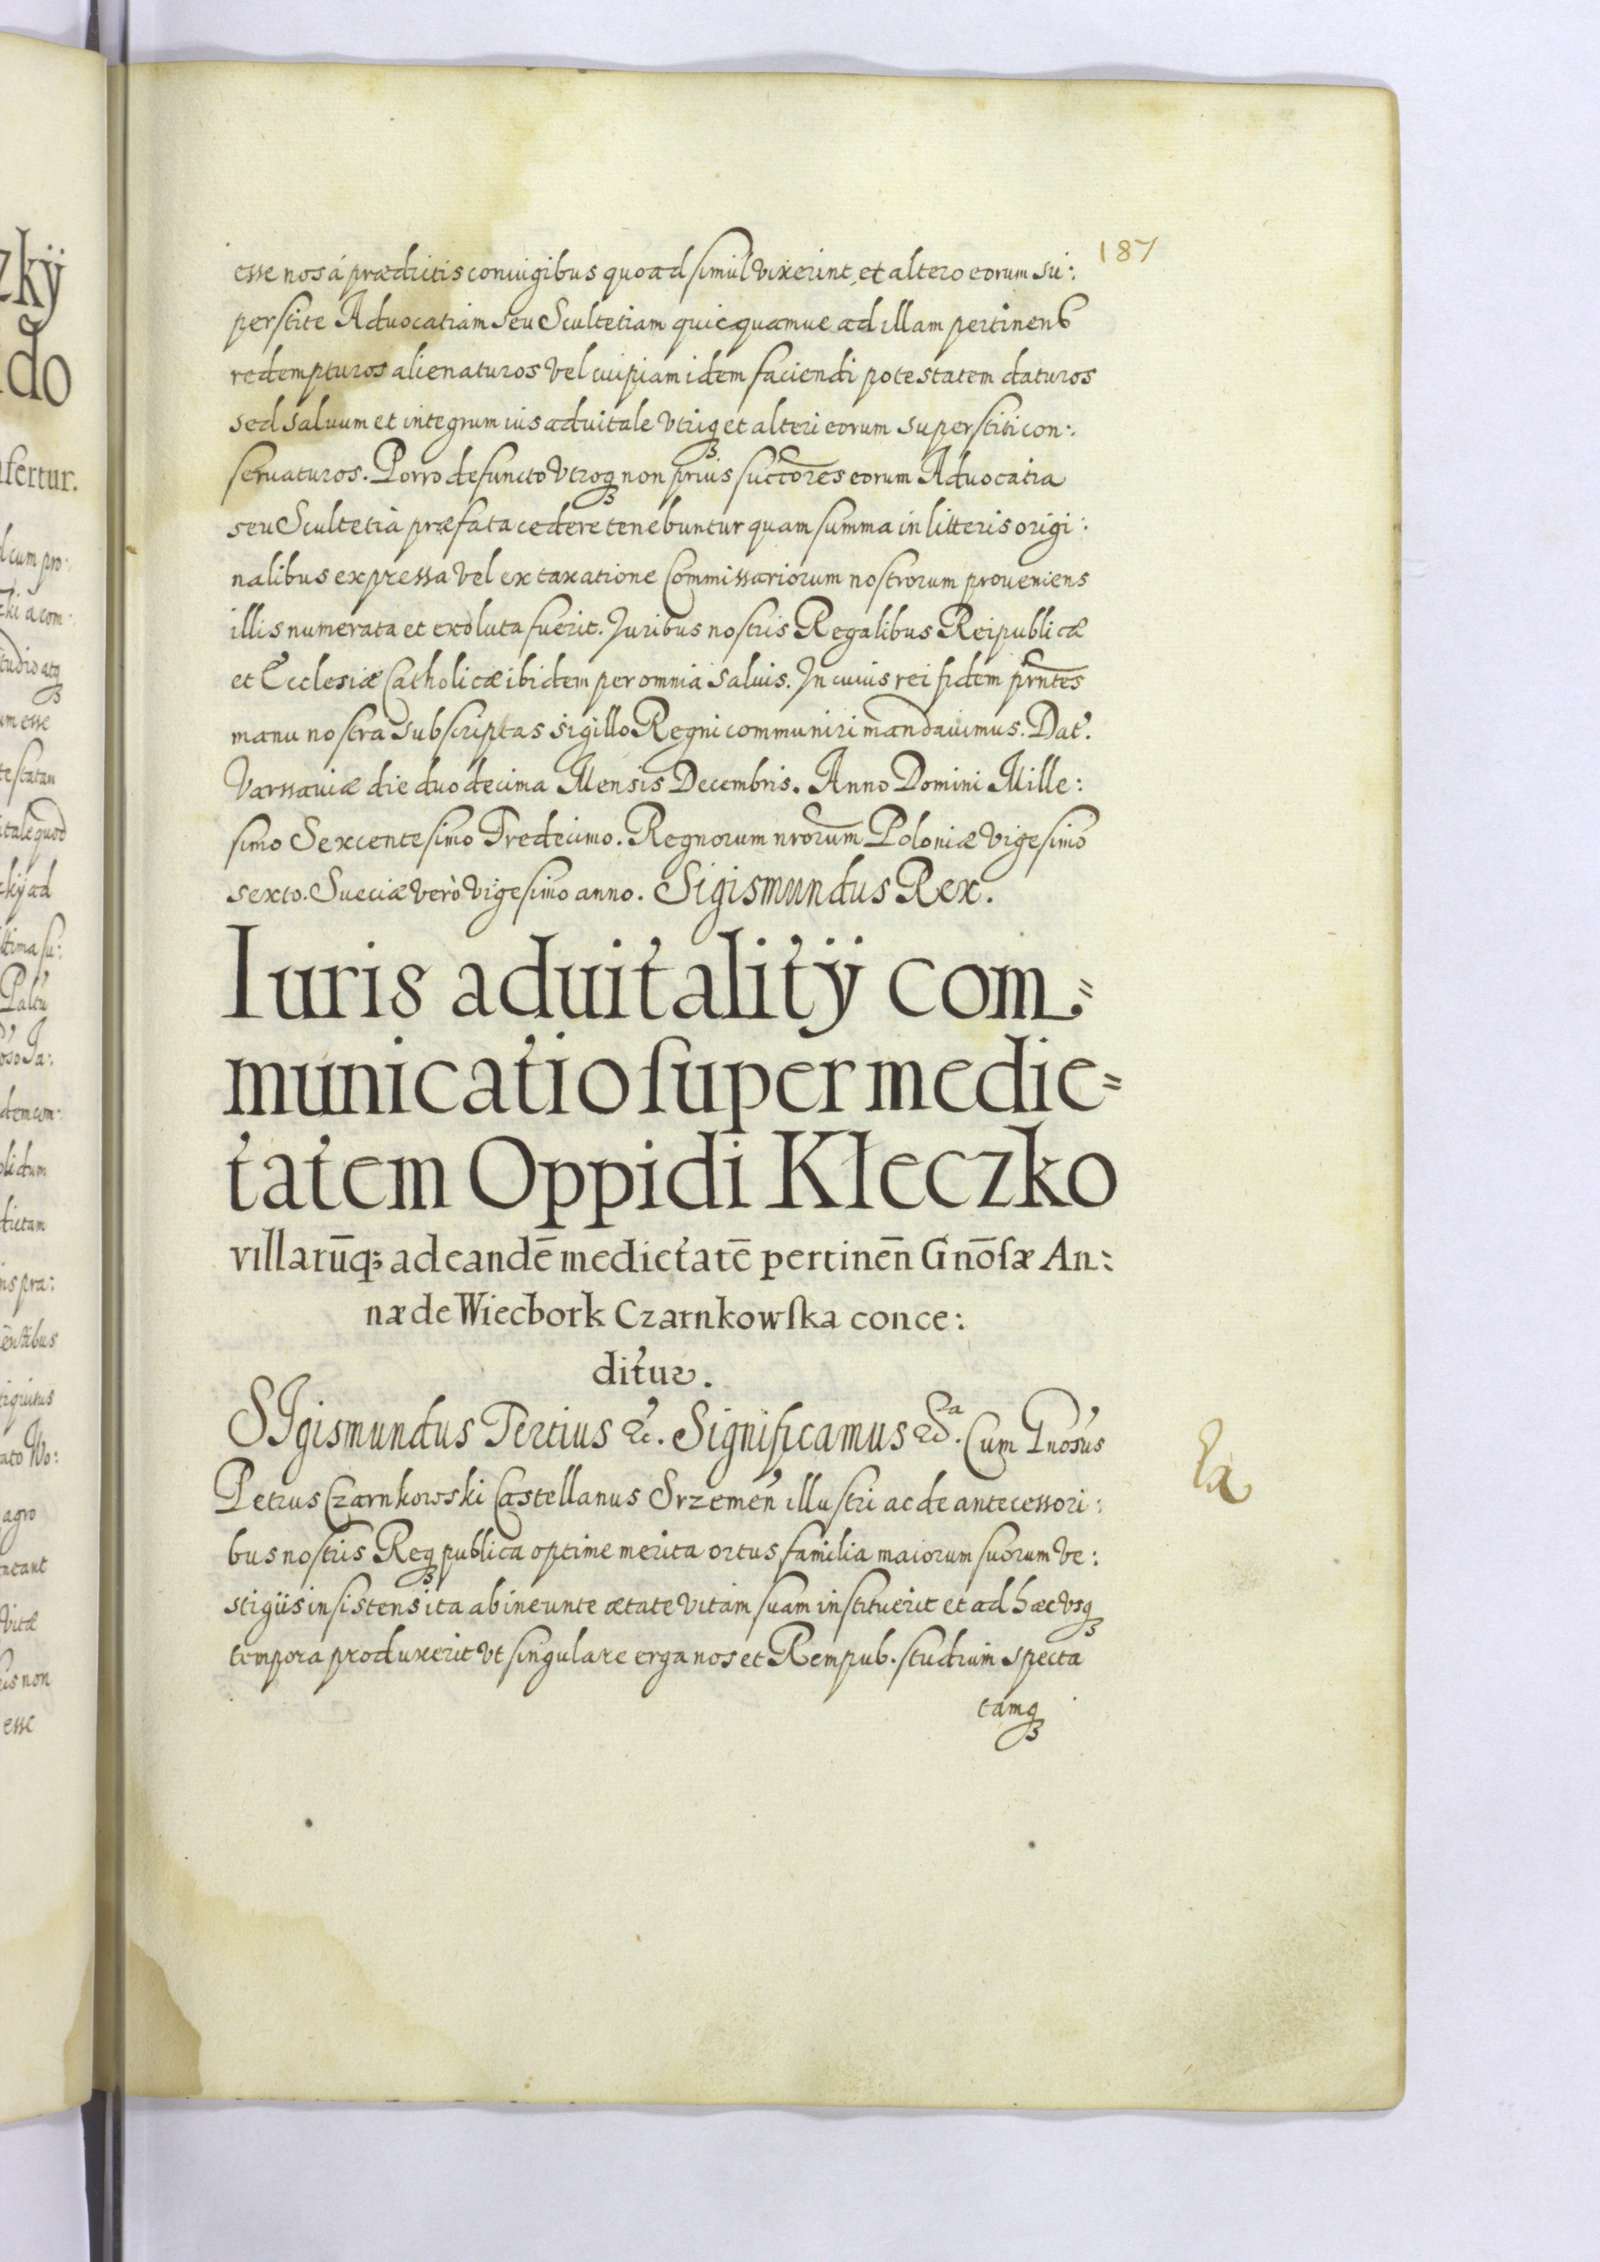 187
esse nos á prædictis coniugibus quoad simul vixerint, et altero eorum su:
perstite Aduocatiam seu Scultetiam quicquamue ad illam pertinens
redempturos alienaturos vel cuipiam idem faciendi potestatem daturos
sed saluum et integrum ius aduitale vtriq3 et alteri eorum superstiti con:
seruaturos. Porro defuncto vtroq3 non prius succores eorum Aduocatia
seu Scultetia præfata cedere tenebuntur quam summa in litteris origi:
nalibus expressa vel ex taxatione Commissariorum nostrorum proueniens
illis numerata et exoluta fuerit. Juribus nostris Regalibus Reipublicæ
et Ecclesiæ Catholicæ ibidem per omnia saluis. In cuius rei fidem prntes
manu nostra subscriptas sigillo Regni communiri mandauimus. Dat.
Varssauiæ die duodecima Mensis Decembris. Anno Domini Mille:
simo Sexcentesimo Tredecimo. Regnorum nrorum Poloniæ vigesimo
sexto. Sueciæ verò vigesimo anno. Sigismundus Rex.
Iuris aduitalitÿ com=
municatio super medie=
tatem Oppidi Kłeczko
villarūq3 ad eandē medietatē pertineñ Gnōsæ An:
næ de Wiecbork Czarnkowska conce:
ditur.
SIgismundus Tertius &c. Significamus &c. Cum Gnosus
Petrus Czarnkowski Castellanus Srzemeñ illustri ac de antecessori:
bus nostris Req3 publica optime merita ortus familia maiorum suorum ve:
stigiis insistens ita ab ineunte ætate vitam suam instituerit et ad hæc vsq3
tempora produxerit vt singulare erga nos et Rempub. studium specta
tamq3